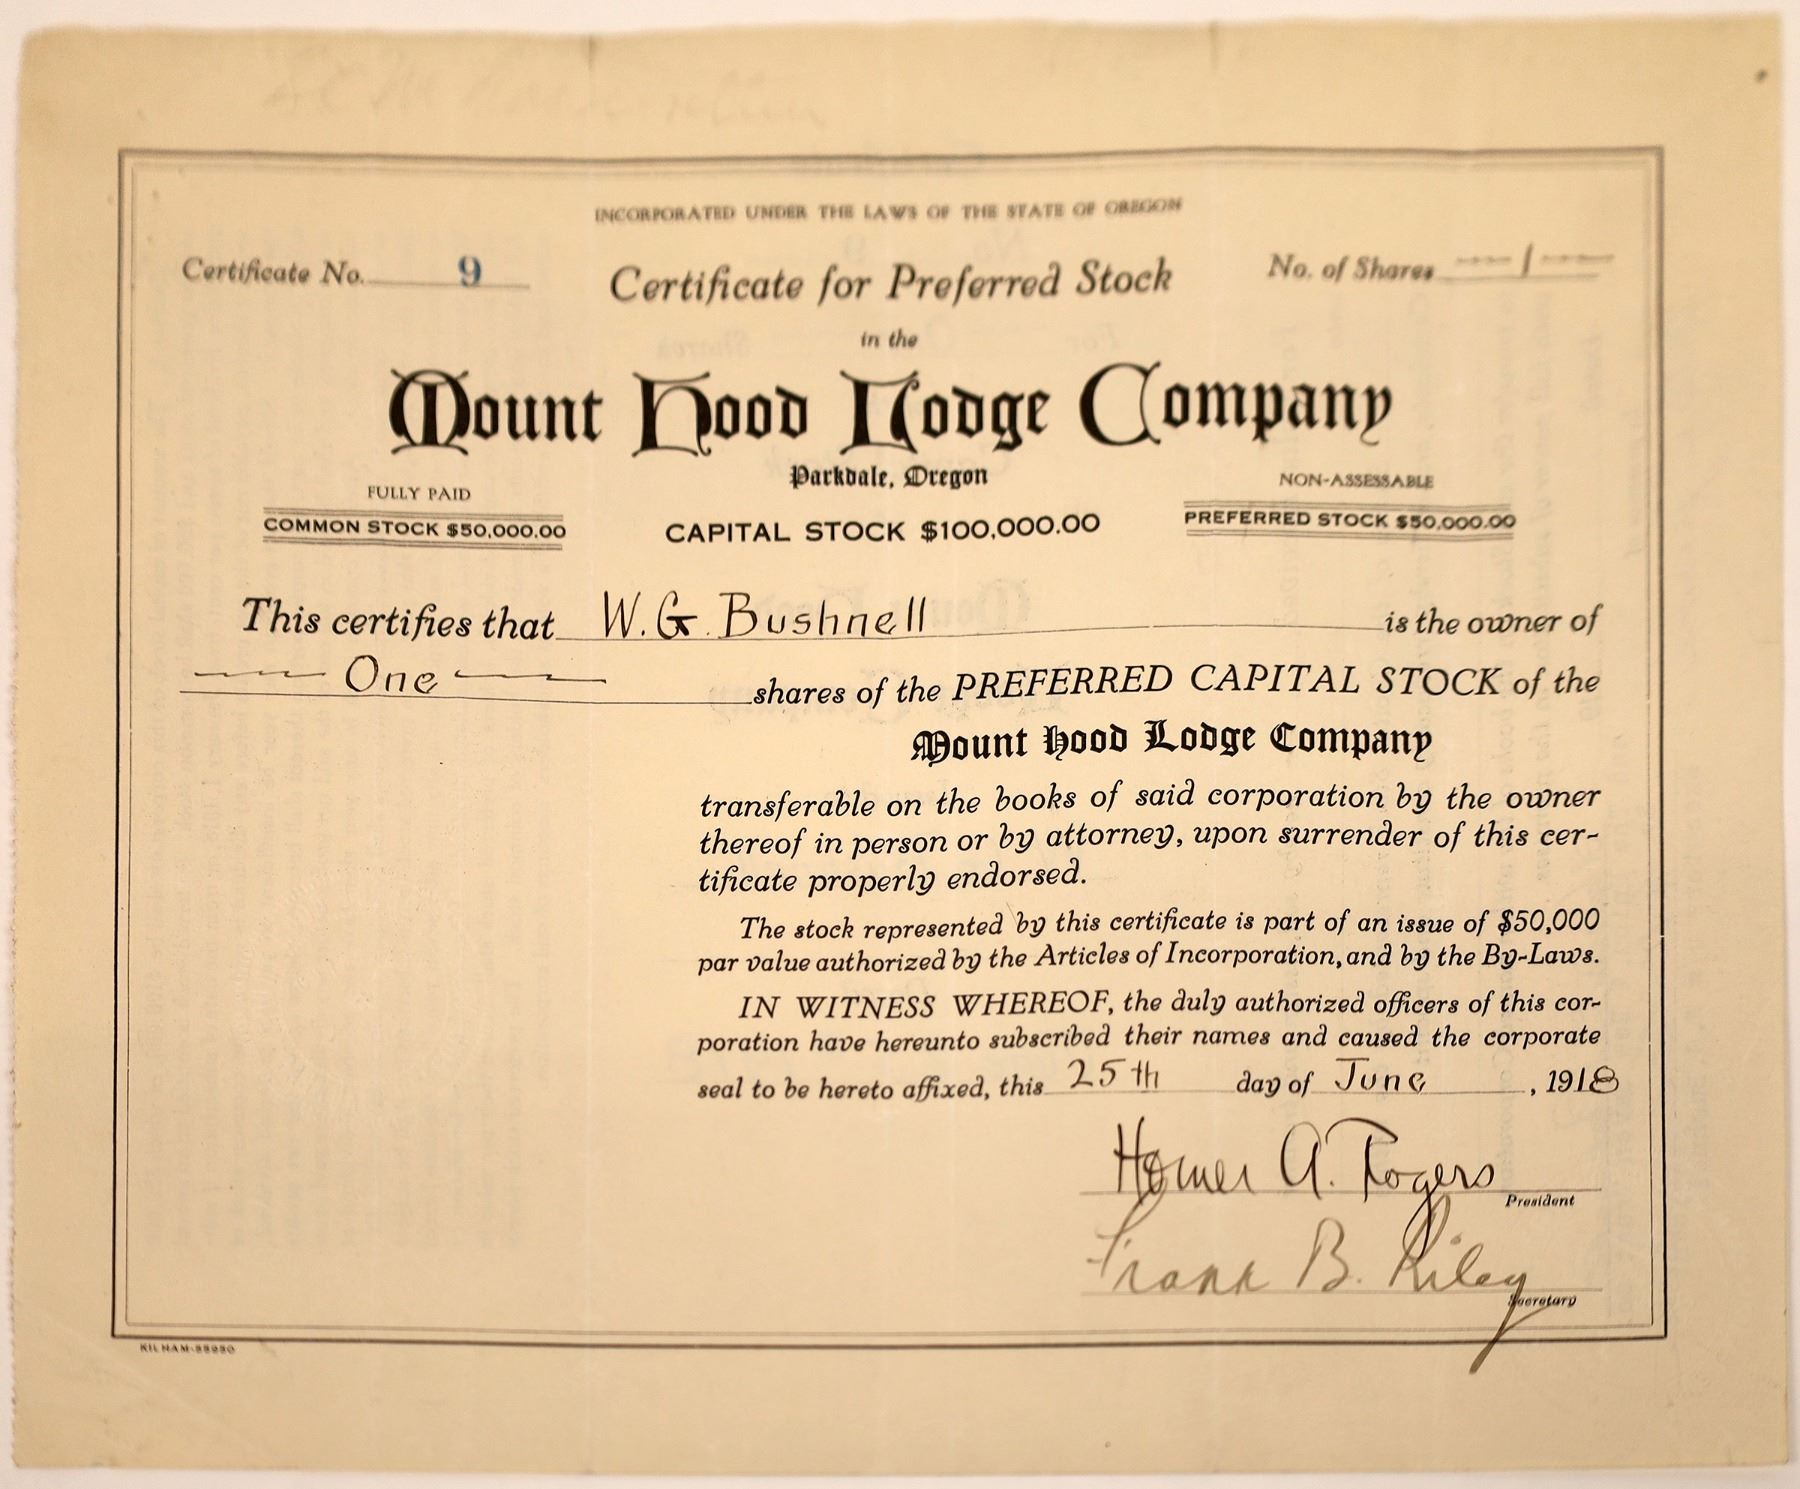 INCORPORATED UNDER THE LAWS OF THE STATE OF OREGON
Certificate No. 9
Certificate for Preferred Stock
No. of Shares — 1 —
in the
Mount Hood Lodge Company
Parkdale, Oregon
FULLY PAID
NON-ASSESSABLE
COMMON STOCK $50,000.00
CAPITAL STOCK $100,000.00
PREFERRED STOCK $50,000.00
This certifies that W. G. Bushnell is the owner of
— One — shares of the PREFERRED CAPITAL STOCK of the
Mount Hood Lodge Company
transferable on the books of said corporation by the owner
thereof in person or by attorney, upon surrender of this cer-
tificate properly endorsed.
The stock represented by this certificate is part of an issue of $50,000
par value authorized by the Articles of Incorporation, and by the By-Laws.
IN WITNESS WHEREOF, the duly authorized officers of this cor-
poration have hereunto subscribed their names and caused the corporate
seal to be hereto affixed, this 25th day of June, 1918
Homer A. Rogers
President
Frank B. Riley
Secretary